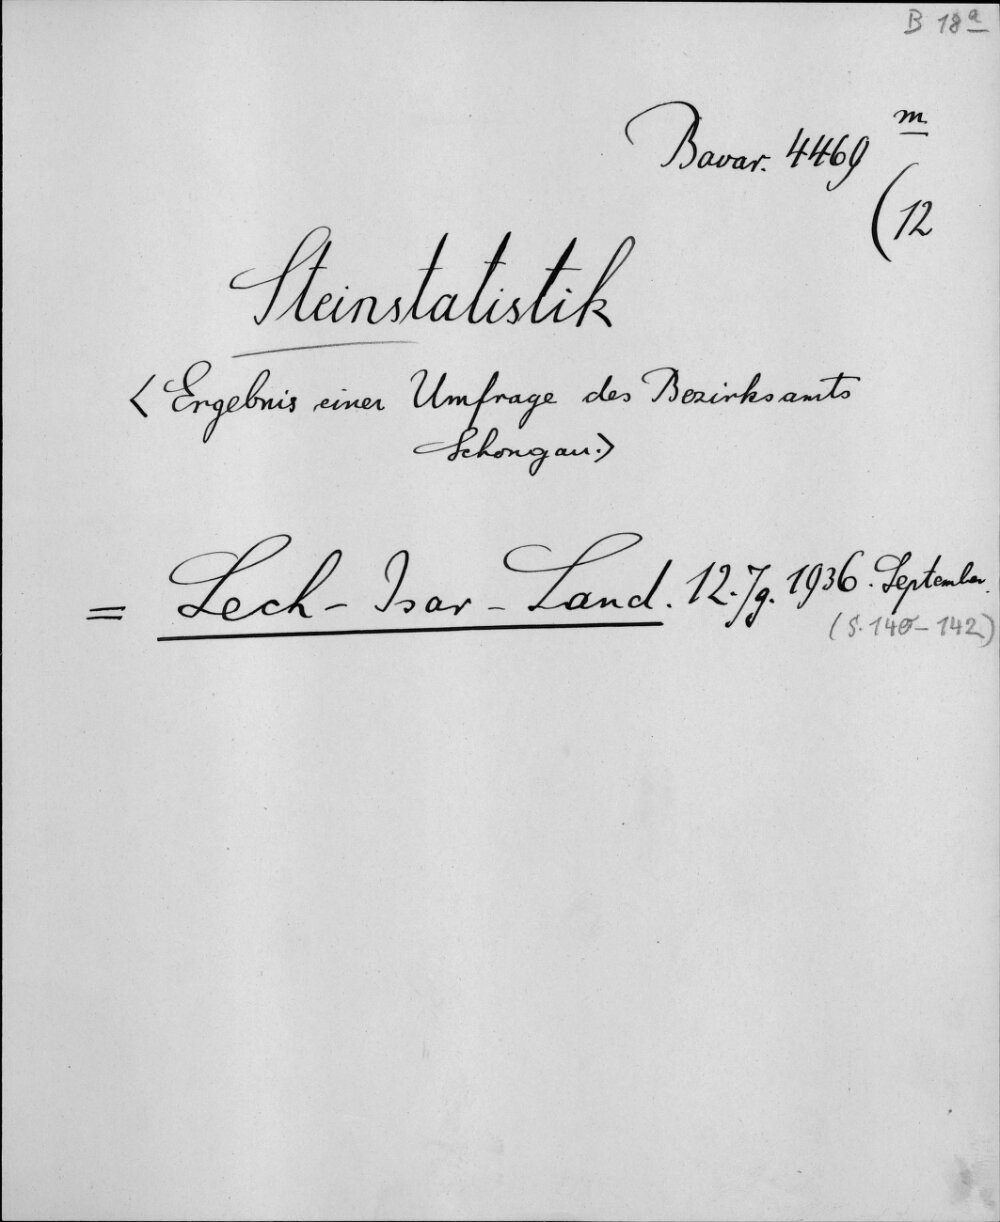 B 18a
Bavar. 4469 m
(12
Steinstatistik
<Ergebnis einer Umfrage des Bezirksamts
Schongau.>
= Lech-Isar-Land. 12. Jg. 1936. September.
(S. 140-142)